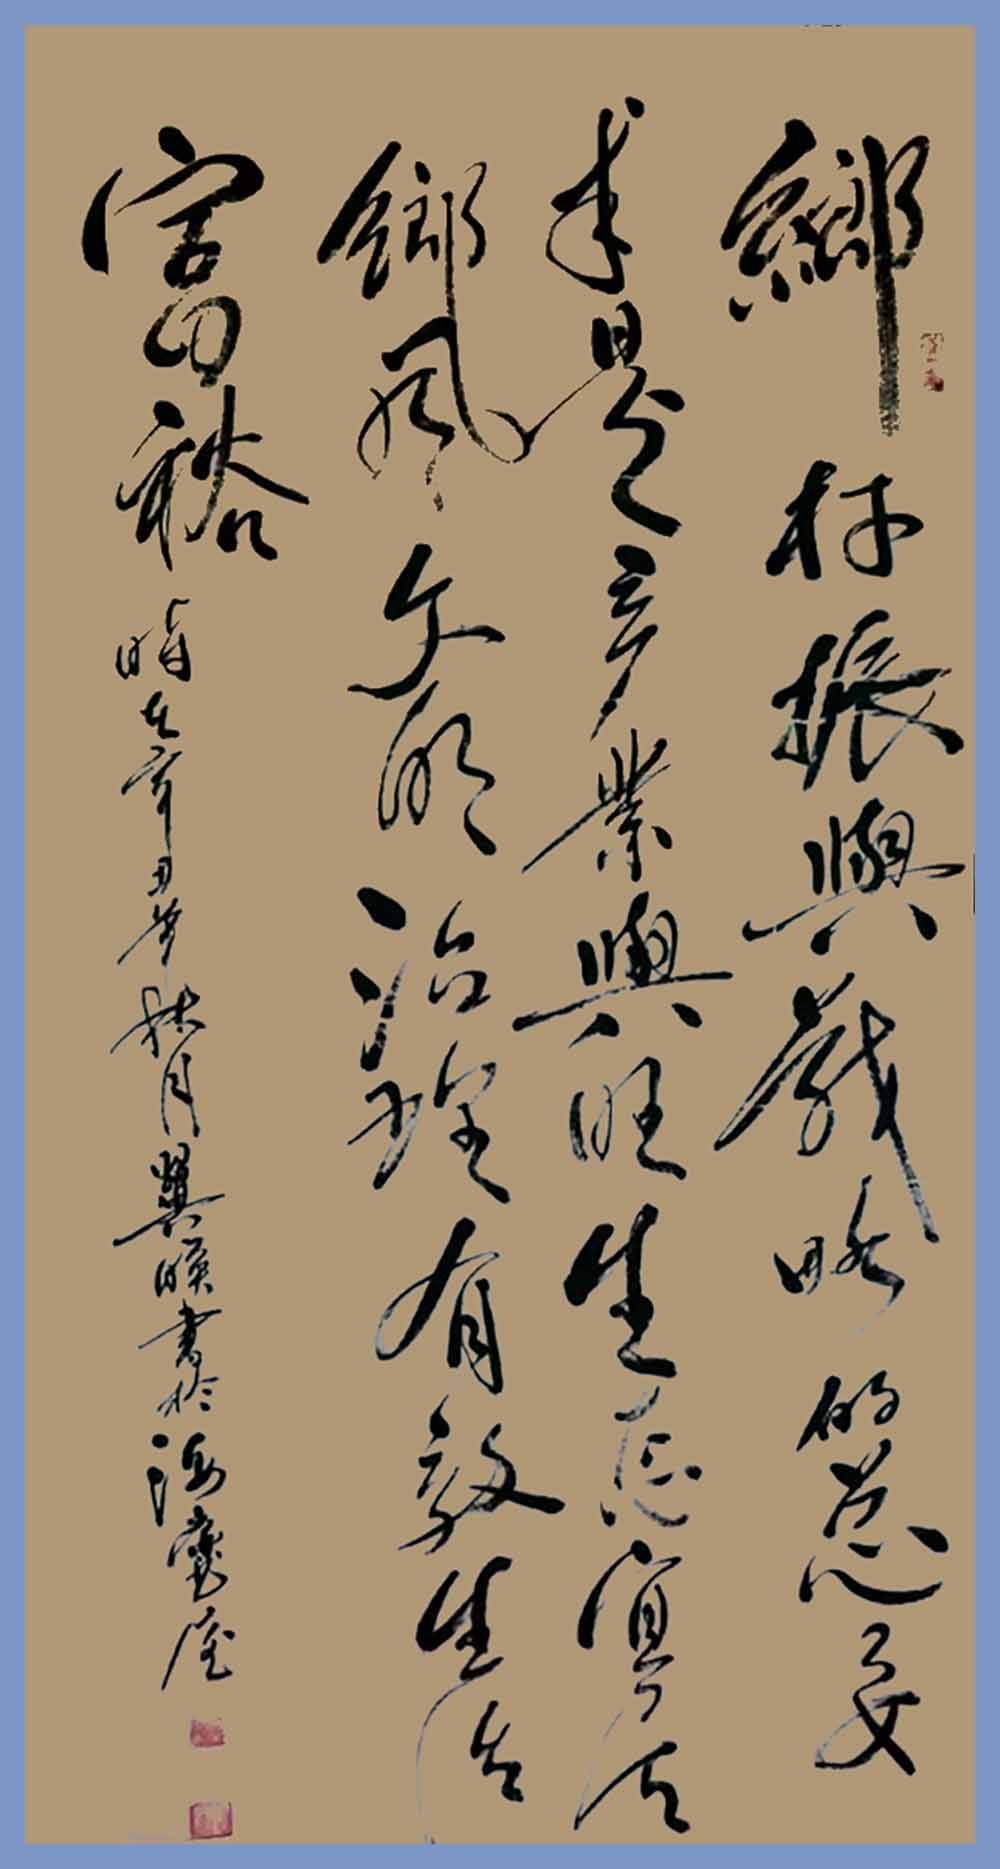 鄉村振興戰略的總要
求是产業興旺生态宜居
鄉風文明治理有效生活
富裕
時在辛丑年秋月翼
書於海